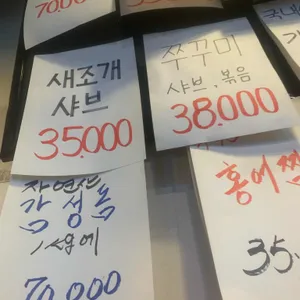 70.000
국내
새조개
샤브
35.000
쭈꾸미
샤브, 볶음
38.000
자연산
감성돔
70.000
홍어찜
35.